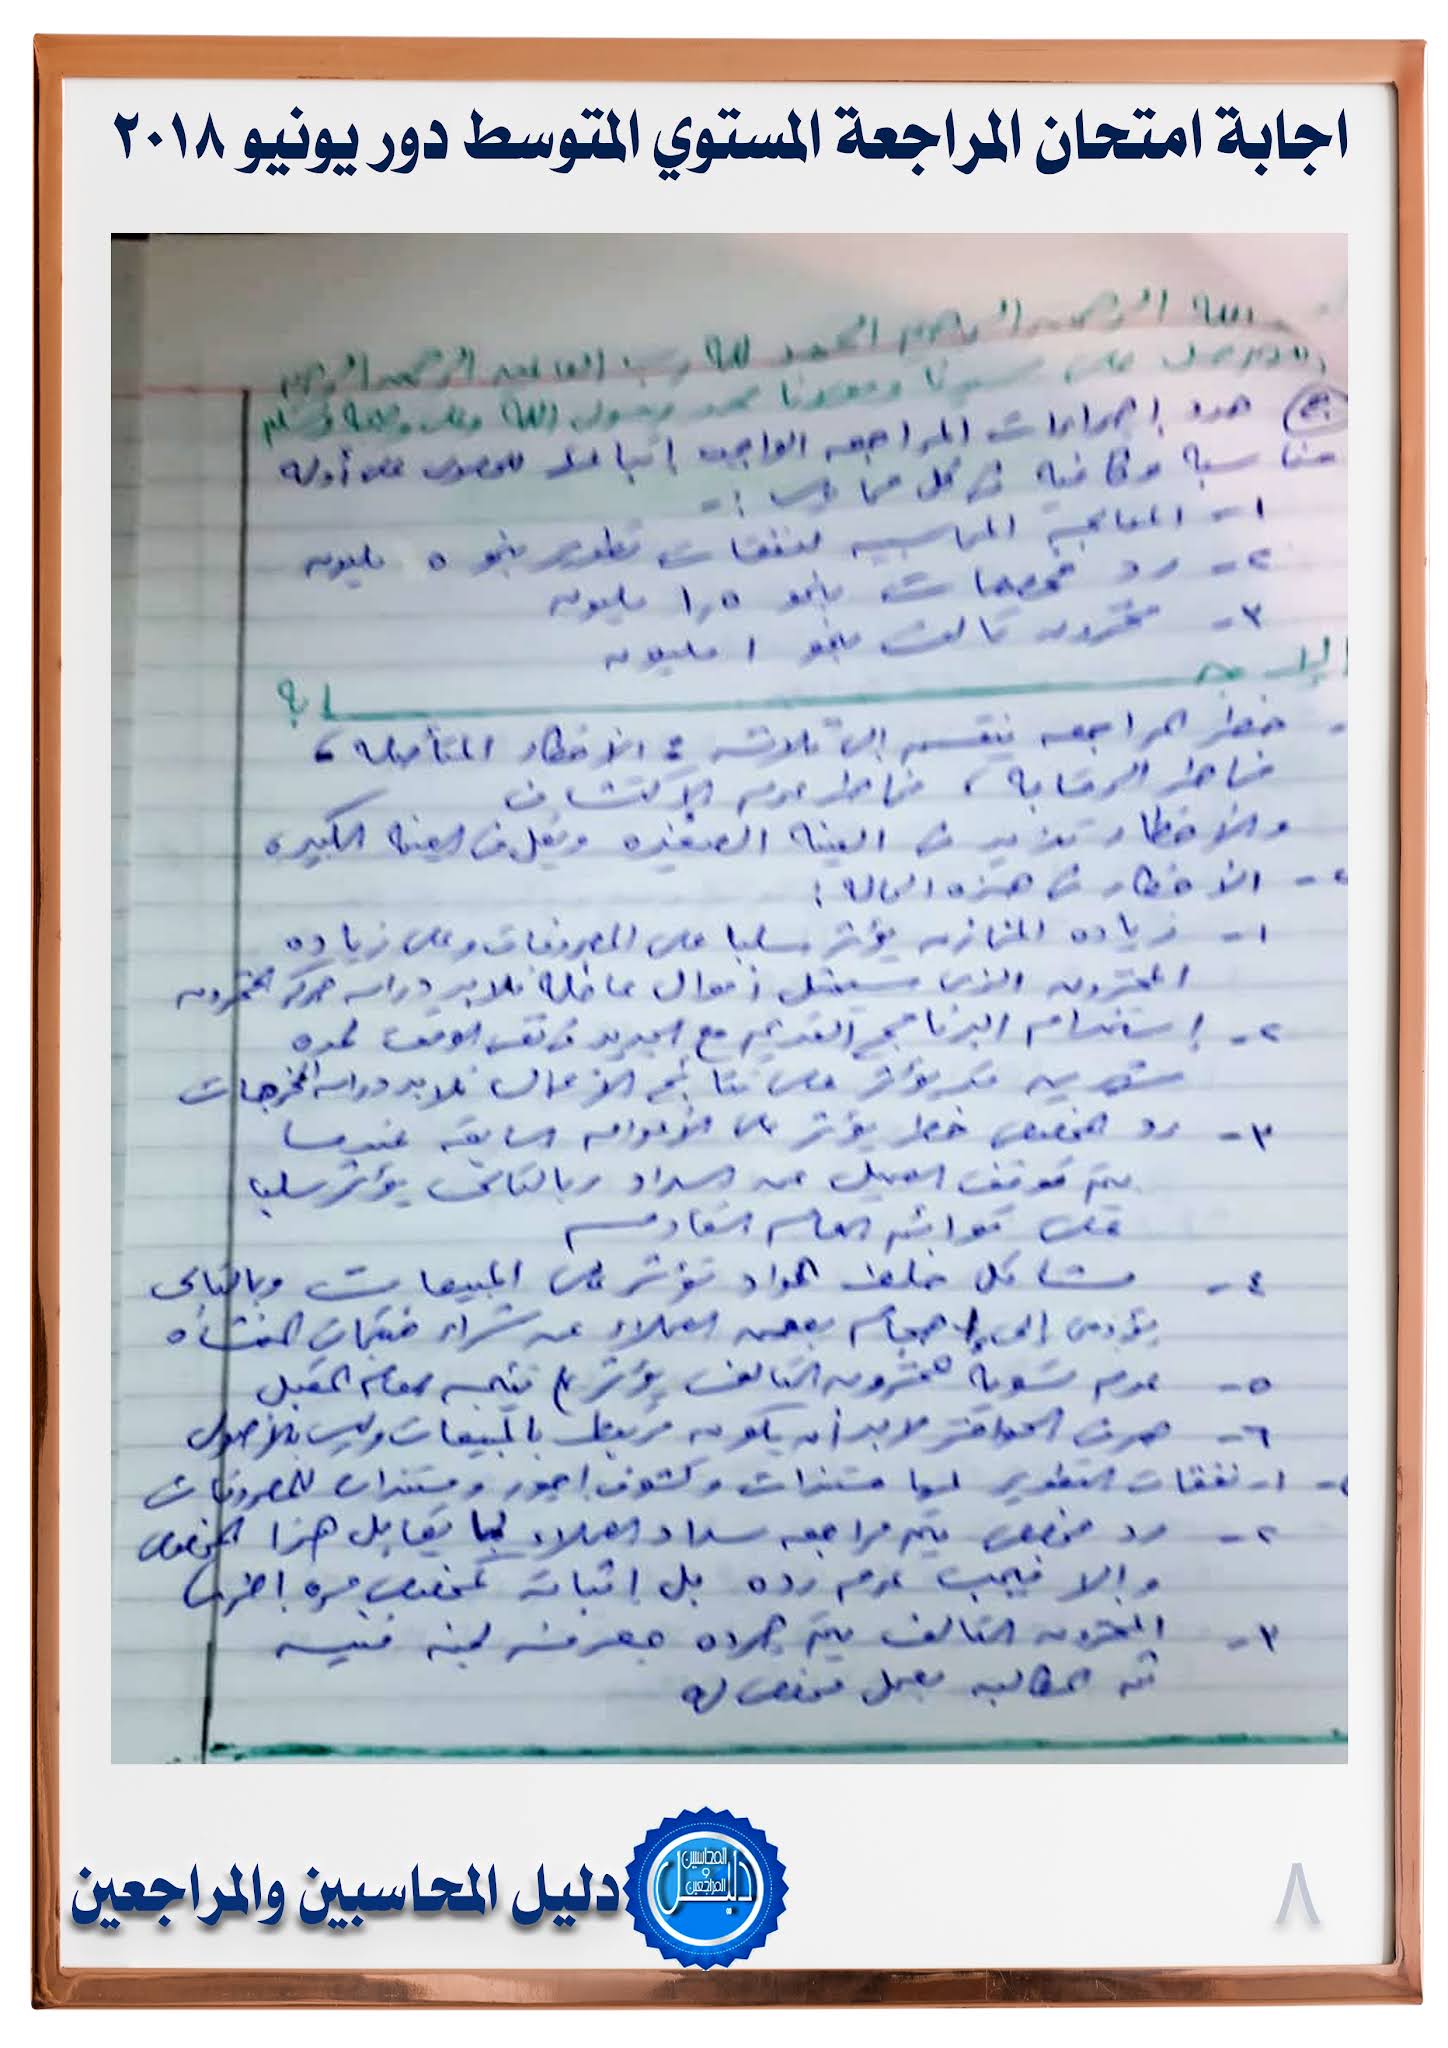 اجابة امتحان المراجعة المستوي المتوسط دور يونيو ٢٠١٨
الله الرحمن الرحيم الحمد لله رب العالمين الرحمن الرحيم
على سيدنا محمد رسول الله وسلم
ج) حدد إجراءات المراجعه الواجب إتباعها للحصول على أدلة
مناسبة وكافية في كل مما يلى :-
١- المعالجة المحاسبيه لنفقات تطوير بنحو ٥ مليون
٢- رد مخصصات بنحو ١,٥ مليون
٣- مخزون تالف بنحو ١ مليون
الإجابة
خطر المراجعه ينقسم إلى ثلاثه : الأخطار المتأصله ،
مخاطر الرقابة ، مخاطر عدم الاكتشاف
والأخطار تزيد فى العينه الصغيره وتقل فى العينه الكبيره
٢- الأخطار فى هذه الحاله :
١- زياده المخازن يؤثر سلبا على المصروفات وعلى زياده
المخزون الذى سيمثل أموال عاطلة فلابد دراسه حركة المخزون
٢- إستخدام البرنامج القديم مع الجديد فى نفس الوقت لمده
شهرين قد يؤثر على نتائج الأعمال فلابد دراسه المخرجات
٣- رد المخصص خطر يؤثر على الأعوام السابقه عندما
يتم توقف العميل عن السداد وبالتالى يؤثر سلبا
على قوائم العام القادم
٤- مشاكل خلط المواد تؤثر على المبيعات وبالتالى
يؤدى إلى إحجام بعض العملاء عن شراء منتجات المنشأه
٥- عدم تسوية المخزون التالف يؤثر على نتيجه العام المقبل
٦- صرف الحوافز لابد أن يكون مرتبط بالمبيعات وليس بالأصول
١- نفقات التطوير لها مستندات وكشوف اجور ومستندات للمصروفات
٢- رد مخصص يتم مراجعه سداد العملاء لما يقابل هذا المخصص
وإلا فيجب عدم رده بل إثبات المخصص مره اخرى
٣- المخزون التالف يتم جرده بمعرفه لجنه فنيه
ثم المطالبه بعمل مخصص له
دليل المحاسبين والمراجعين
دليل المحاسبين و المراجعين
٨